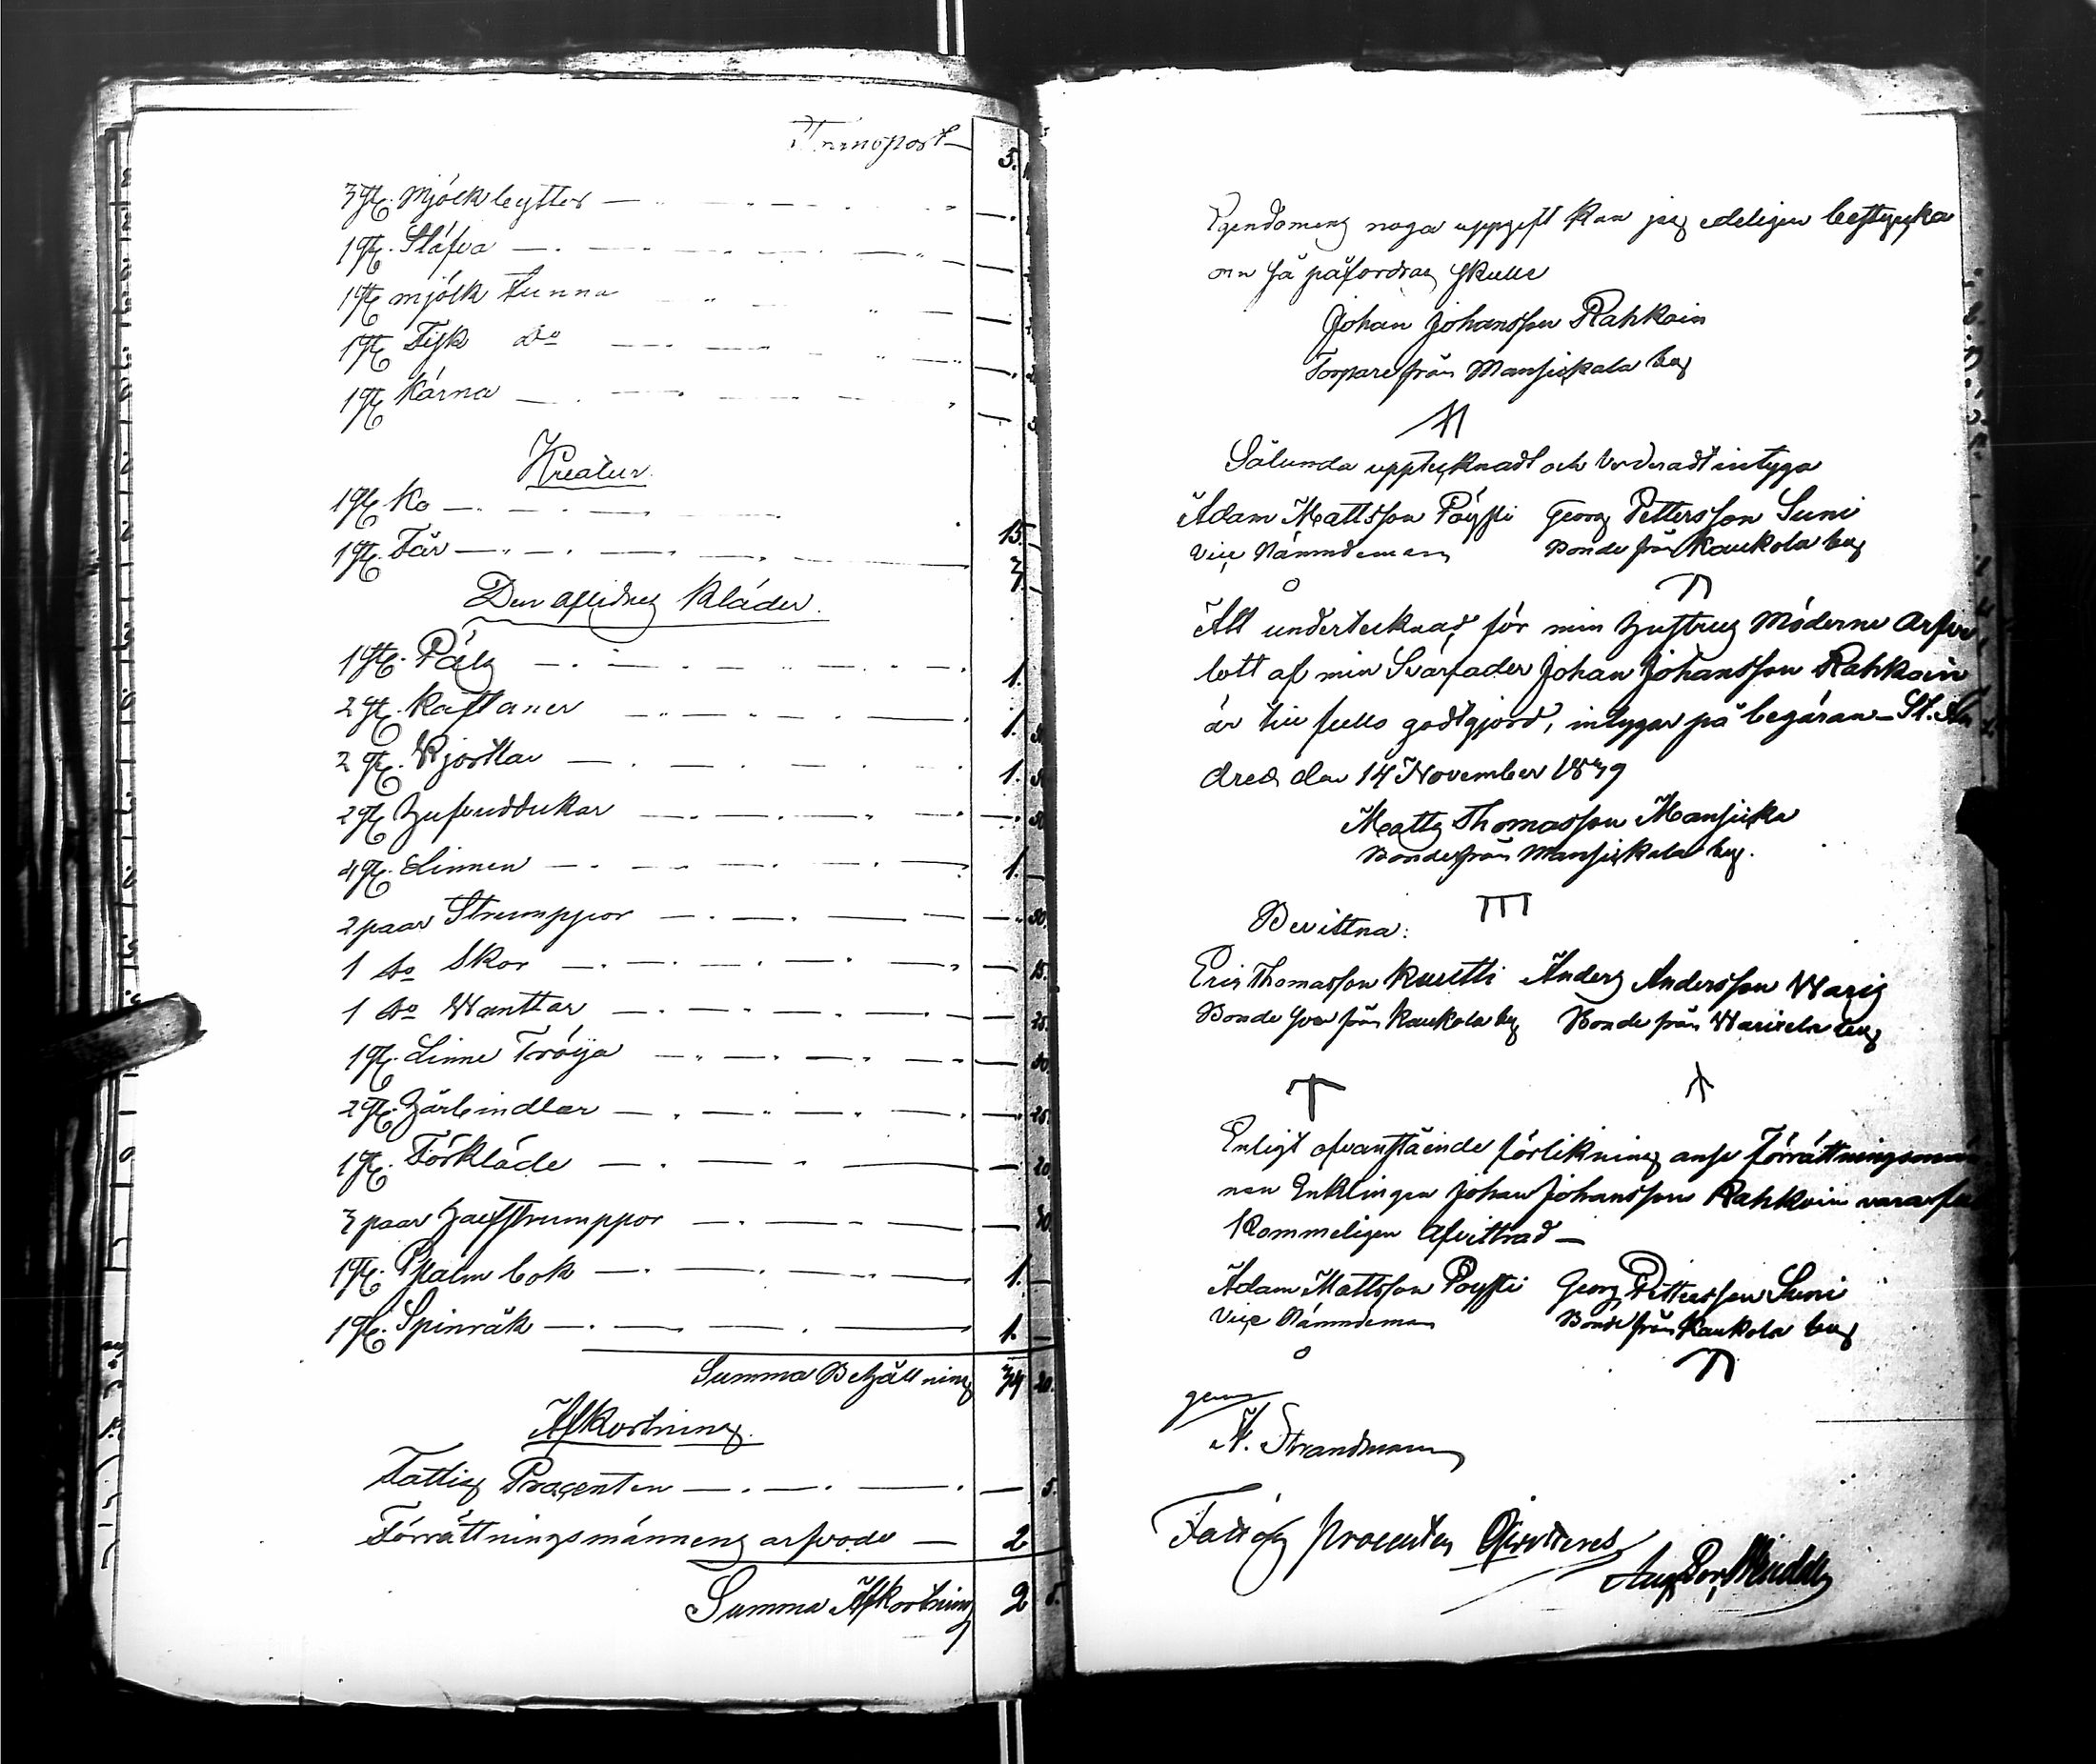 Transport 5.
3 st. Mjölkbyttor — — .
1 st. Stäfva — —
1 st. mjölk tunna — —
1 st. Fisk do — — .
1 st. kärna — —
Kreatur.
1 st. Ko — 15. —
1 st. Får — 3. —
Den aflidnes Kläder.
1 st. Päls — 1.
2 st. kaftaner — 1.
2 st. Kjortlar — 1.
2 st. hufvuddukar — — 50
4 st. Linnen — 1. —
2 paar Strumppor — — 30.
1 do Skor — — 15.
1 do Wanttar — — 25.
1 st. Linne Tröija — — 20.
2 st. Hårbindlar — — 25.
1 st. Förkläde — — 20
3 paar halfstrumppor — — 30.
1 st. Psalmbok — 1. —
1 st. Spinråk — 1. —
Summa Behållning 34 20.
Afkortning.
Fattig Procenten — — 5.
Förrättningsmännens arfvode — 2
Summa Afkortning 2 5.
Egendomens noga uppgift kan jag edeligen bestyrcka
om så påfordras skulle
Johan Johansson Rahkoin
Torpare från Mansickala by
Sålunda upptecknadt och Värderadt intyga
Adam Mattsson Pöysti Georg Pettersson Suni
Vice Nämndeman Bonde från Kaukola by
Att undertecknad för min hustrus Möderne Arfve
lott af min Svärfader Johan Johansson Rahkoin
är till fullo godtgjord, intygar på begäran — St. An
dreæ den 14 November 1879
Matts Thomasson Mansicka
Bonde från Mansickala by.
Bevittna:
Eric Thomasson Kuitti Anders Andersson Waris
Bonde Son från Kaukola by Bonde från Warixela by
Enligt ofvanstående förlikning anse Förrättningsmän
nen Enklingen Johan Johansson Rahkoin vara full
kommeligen Afvittrad —
Adam Mattsson Pöysti Georg Pettersson Suni
Vice Nämndeman Bonde från Kaukola by
genom
A. Strandman
Fattig procenten Qvitteras
Aug.